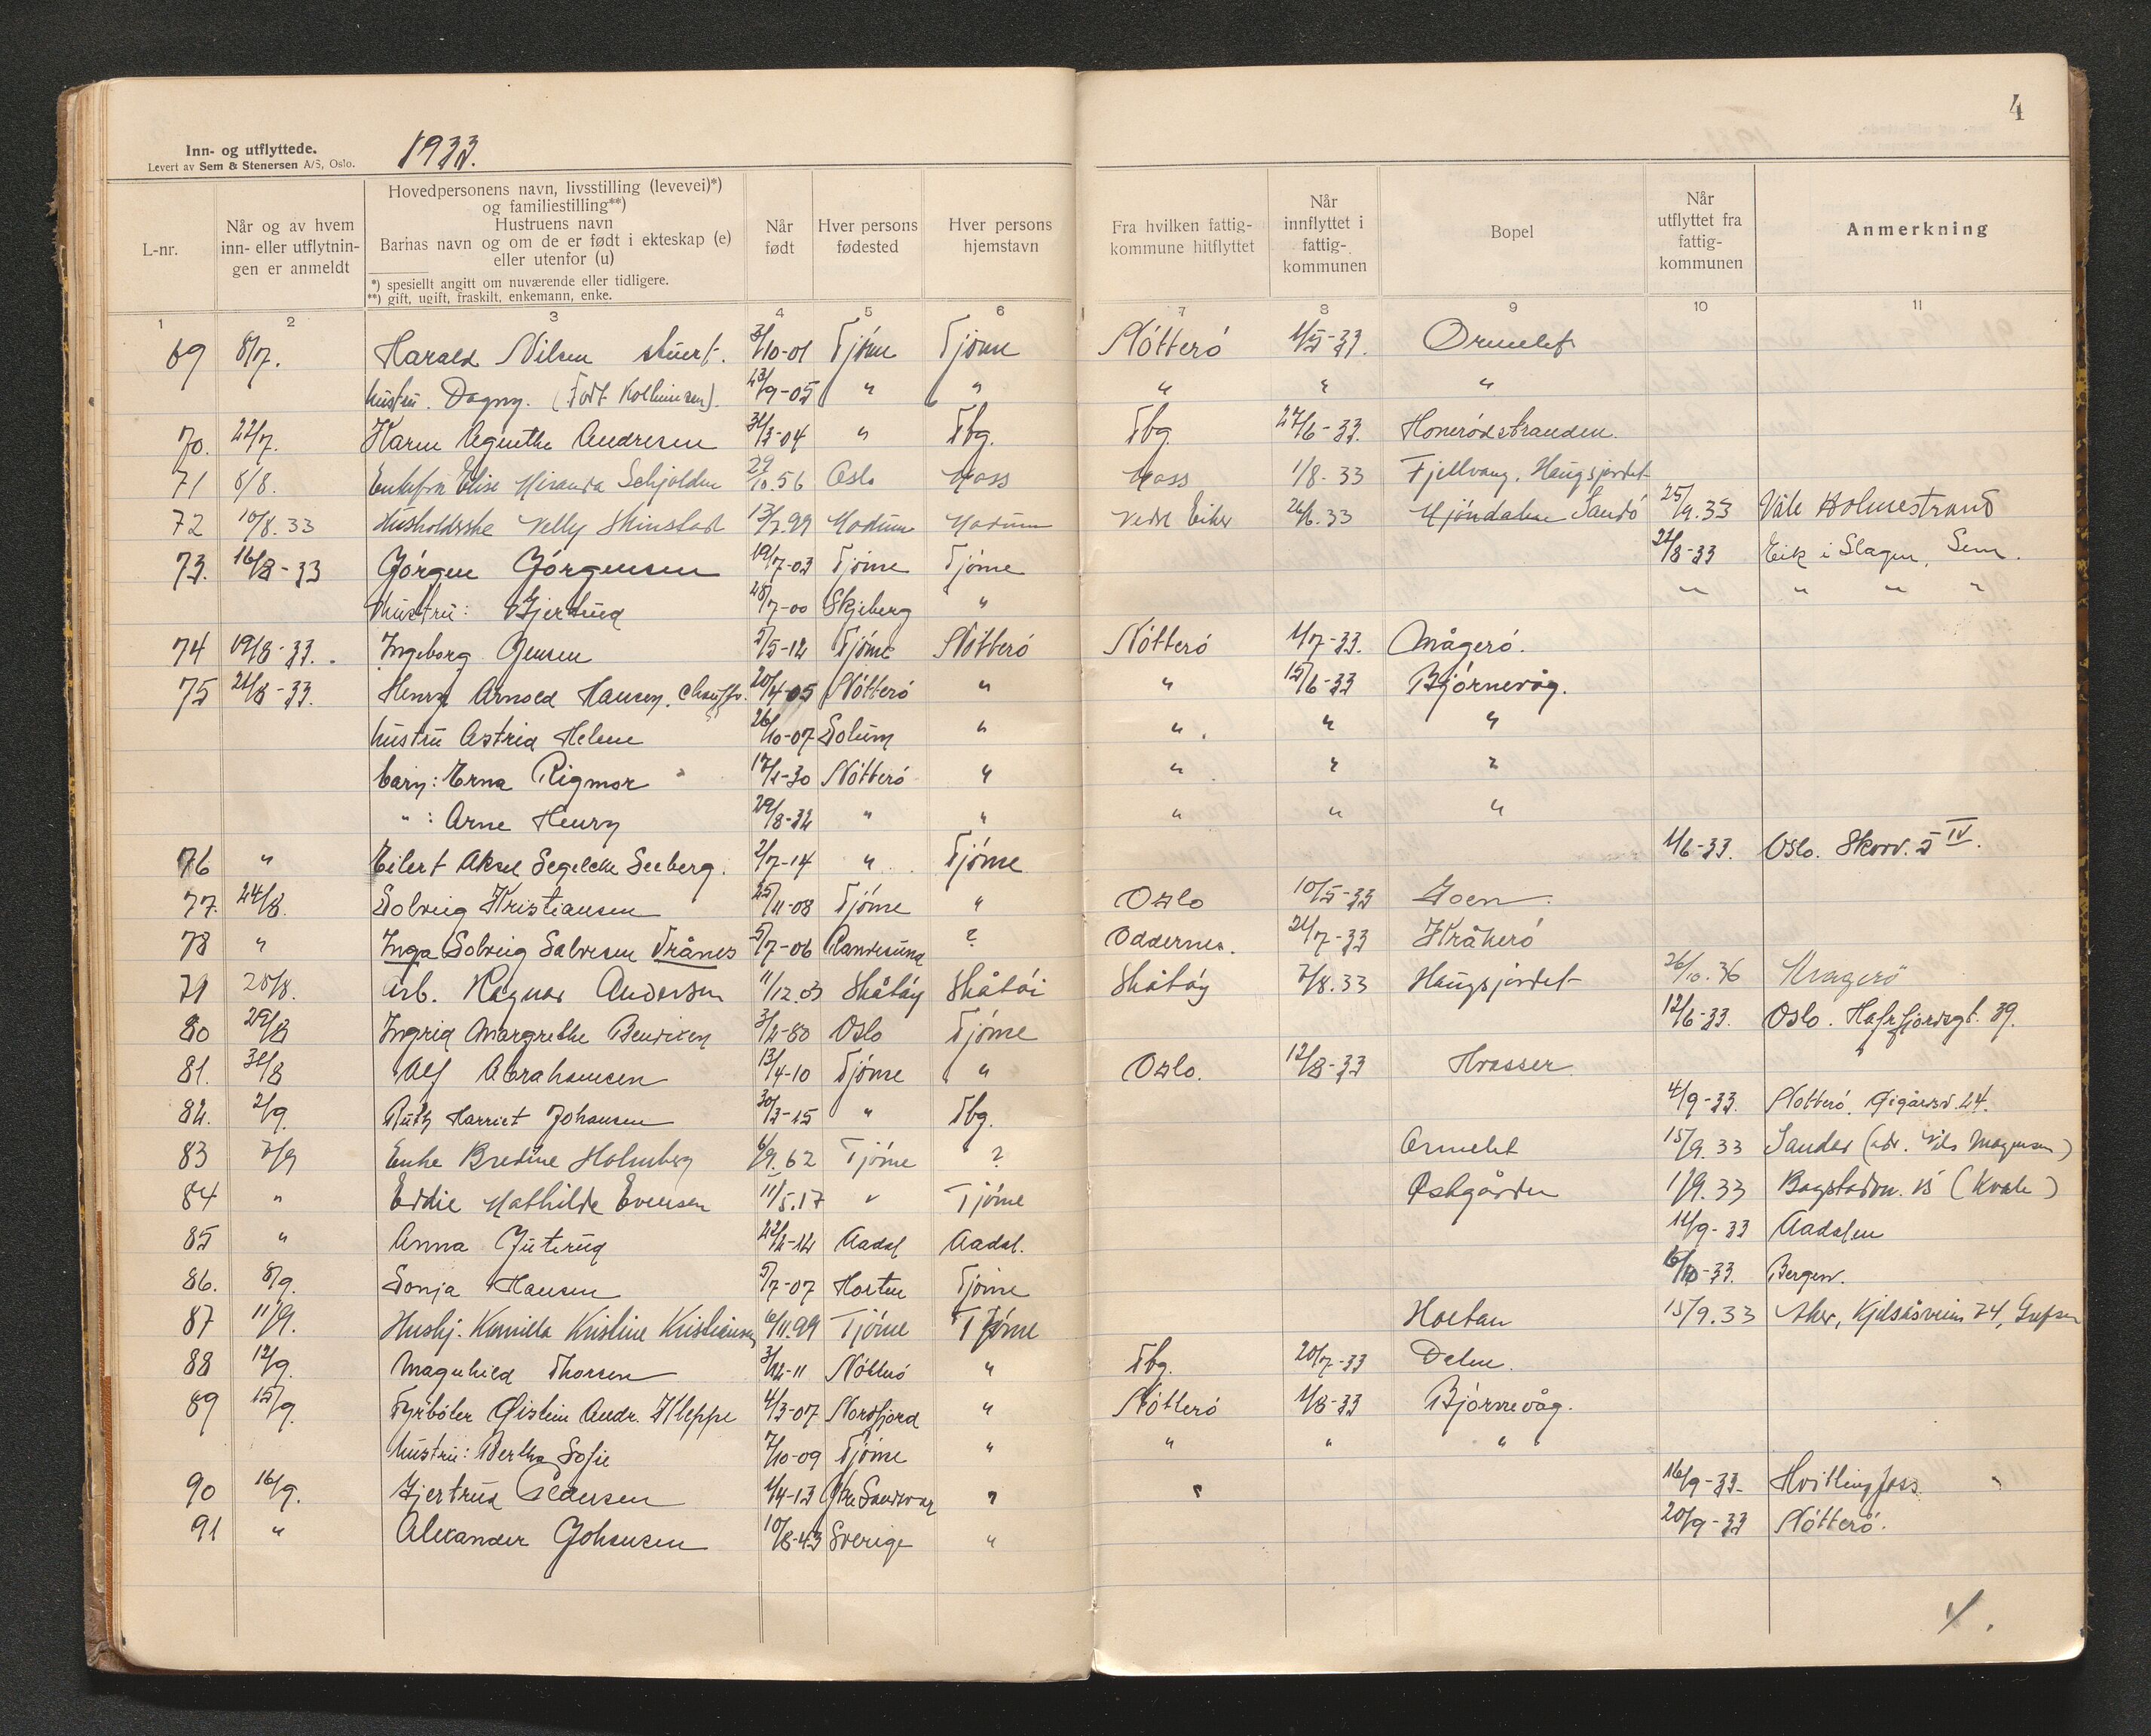 4
Inn- og utflyttede.
Levert av Sem & Stenersen A/S, Oslo.
1933.
L-nr.
Når og av hvem inn- eller utflytnin-gen er anmeldt
Hovedpersonens navn, livsstilling (levevei)*) og familiestilling**)
Hustruens navn
Barnas navn og om de er født i ekteskap (e) eller utenfor (u)
*) spesiellt angitt om nuværende eller tidligere.
**) gift, ugift, fraskilt, enkemann, enke.
Når født
Hver persons fødested
Hver persons hjemstavn
Fra hvilken fattig-kommune hitflyttet
Når innflyttet i fattig-kommunen
Bopel
Når utflyttet fra fattig-kommunen
Anmerkning
1 2 3 4 5 6 7 8 9 10 11
69 8/7. Harald Nilsen stuert. 3/10-01 Tjøme Tjøme Nötterö 1/5-33. Ormelet
hustru. Dagny. (Født 9-05 " " " " "
70. 22/7. Karen Agnethe Andresen 31/3-04 " Tbg. Tbg. 27/6-33. Honerödstranden.
71 8/8. Enkefru Elise Miranda Schjolden 29/10.56 Oslo Moss Moss 1/8-33 Fjellvang, Haugsjordet
72 10/8.33 Husholderske Nelly Skinstad 13/7.99 Modum Modum Nedre Eiker 26/6.33 Mjöndalen Sandö 25/9.33 Våle Holmestrand
73. 16/8-33 Jörgen Jörgensen 19/7-03 Tjöme Tjöme 21/8-33 Eik i Slagen, Sem.
Hustru: Gjertrud 28/7-00 Skjeberg " " " " "
74 19/8-33. Ingeborg Jensen 5/5-12 Tjöme Nötterö Nötterö 1/7-33. Mågerö.
75 21/8-33. Henry Arnold Hansen, chauffør. 20/4-05 Nötterö " " 15/6-33 Björnevåg.
hustru Astrid Helene 26/10-07 Solum " " " "
barn: Erna Rigmor 17/1-30 Nötterö " " " "
": Arne Henry 29/8-32 " " " " "
76 " Eilert Aksel Segelcke Seeberg. 2/7-14 " Tjöme 1/6-33. Oslo. Skovv. 5 IV.
77. 24/8. Solveig Kristiansen 25/11-08 Tjöme " Oslo 10/5-33 Goen.
78 " Inga Solveig Salvesen Trånes 5/7-06 Randesund ? Oddernes. 21/7-33 Kråkerö
79 25/8. Arb. Ragnar Andersen 11/12.03 Skåtöy Skåtöi Skåtöy 7/8.33 Haugsjordet 26/10.36 Kragerö
80 29/8 Ingrid Margrethe Bendixen 3/2-80 Oslo Tjöme 12/6-33. Oslo. Hafrsfjordsgt. 39.
81. 31/8 Alf Abrahamsen 13/4-10 Tjöme " Oslo. 12/8-33 Hvasser
82. 2/9. Ruth Harriet Johansen 30/3-15 " Tbg. 4/9-33. Nötterö.
83 7/9 Enke Bredine Holmberg 6/9.62 Tjöme " ? Ormelet 15/9.33 Sandar (adr. Nils Magnusen)
84 " Eddie Mathilde Evensen 11/5.17 " Tjöme Østgården 1/9.33 Bogstadvn. 15 (Kvale)
85 " Anna Juterud 12 Aadal Aadal. 11/9-33 Aadalen
86. 8/9. Sonja Hansen 5/7-07 Horten Tjöme 6/10-33. Bergen.
87 11/9. Hushj. Kamilla Kristine Kristiansen 6/11.99 Tjöme Tjöme Holtan 15/9.33 Aker, Kjelsåsveien 74, Grefsen
88 12/9. Magnhild Thorsen 3/12-11 Nötterö " Tbg. 20/7-33 Dalen.
89 15/9. Fyrböter Øistein Andr. Kleppe 4/3-07 Nordfjord " Nötterö 1/8-33 Björnevåg.
hustru: Bertha Sofie 7/10-09 Tjöme " " " "
90 16/9. Gjertrud Pedersen 1/4-13 Øtre Sandsvær " " 16/9-33. Hvittingfoss. "
91 " Alexander Johansen 10/8-43 Sverige " 20/9-33 Nötterö.